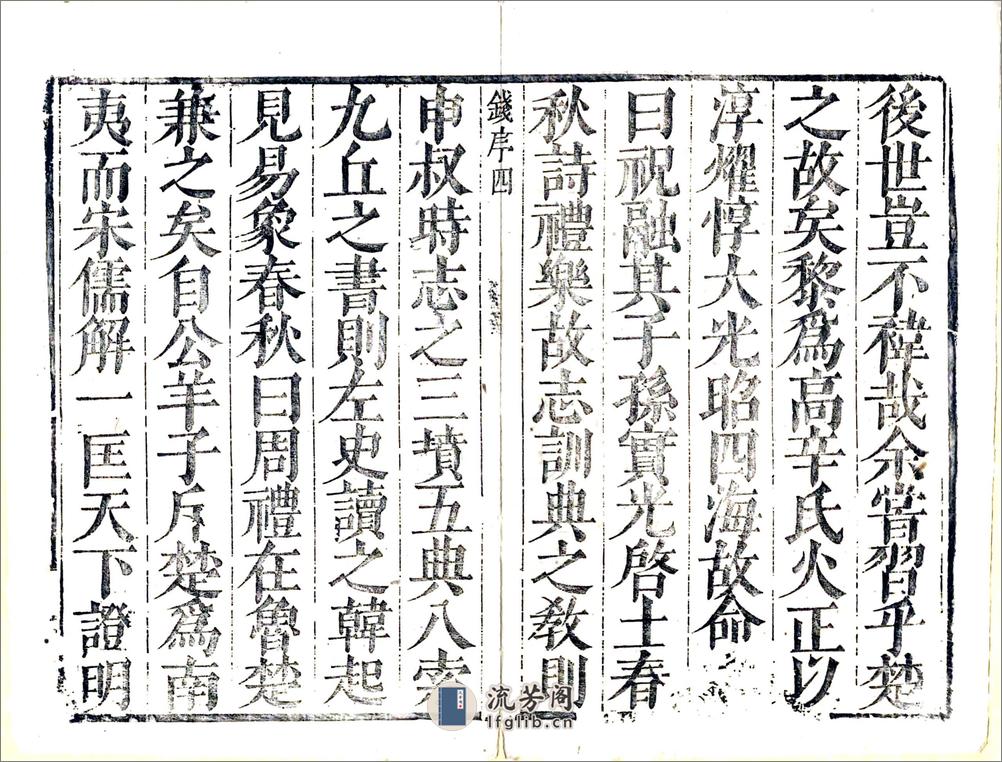 後世豈不褘哉余嘗習乎楚
之故矣黎爲高辛氏火正以
淳燿惇大光昭四海故命
曰祝融其子孫實光啓土春
秋詩禮樂故志訓典之教則
錢序四
申叔時志之三墳五典八索
九丘之書則左史讀之韓起
見易象春秋曰周禮在魯楚
兼之矣自公羊子斥楚爲南
夷而宋儒解一匡天下證明
流芳阁
lfglib.cn